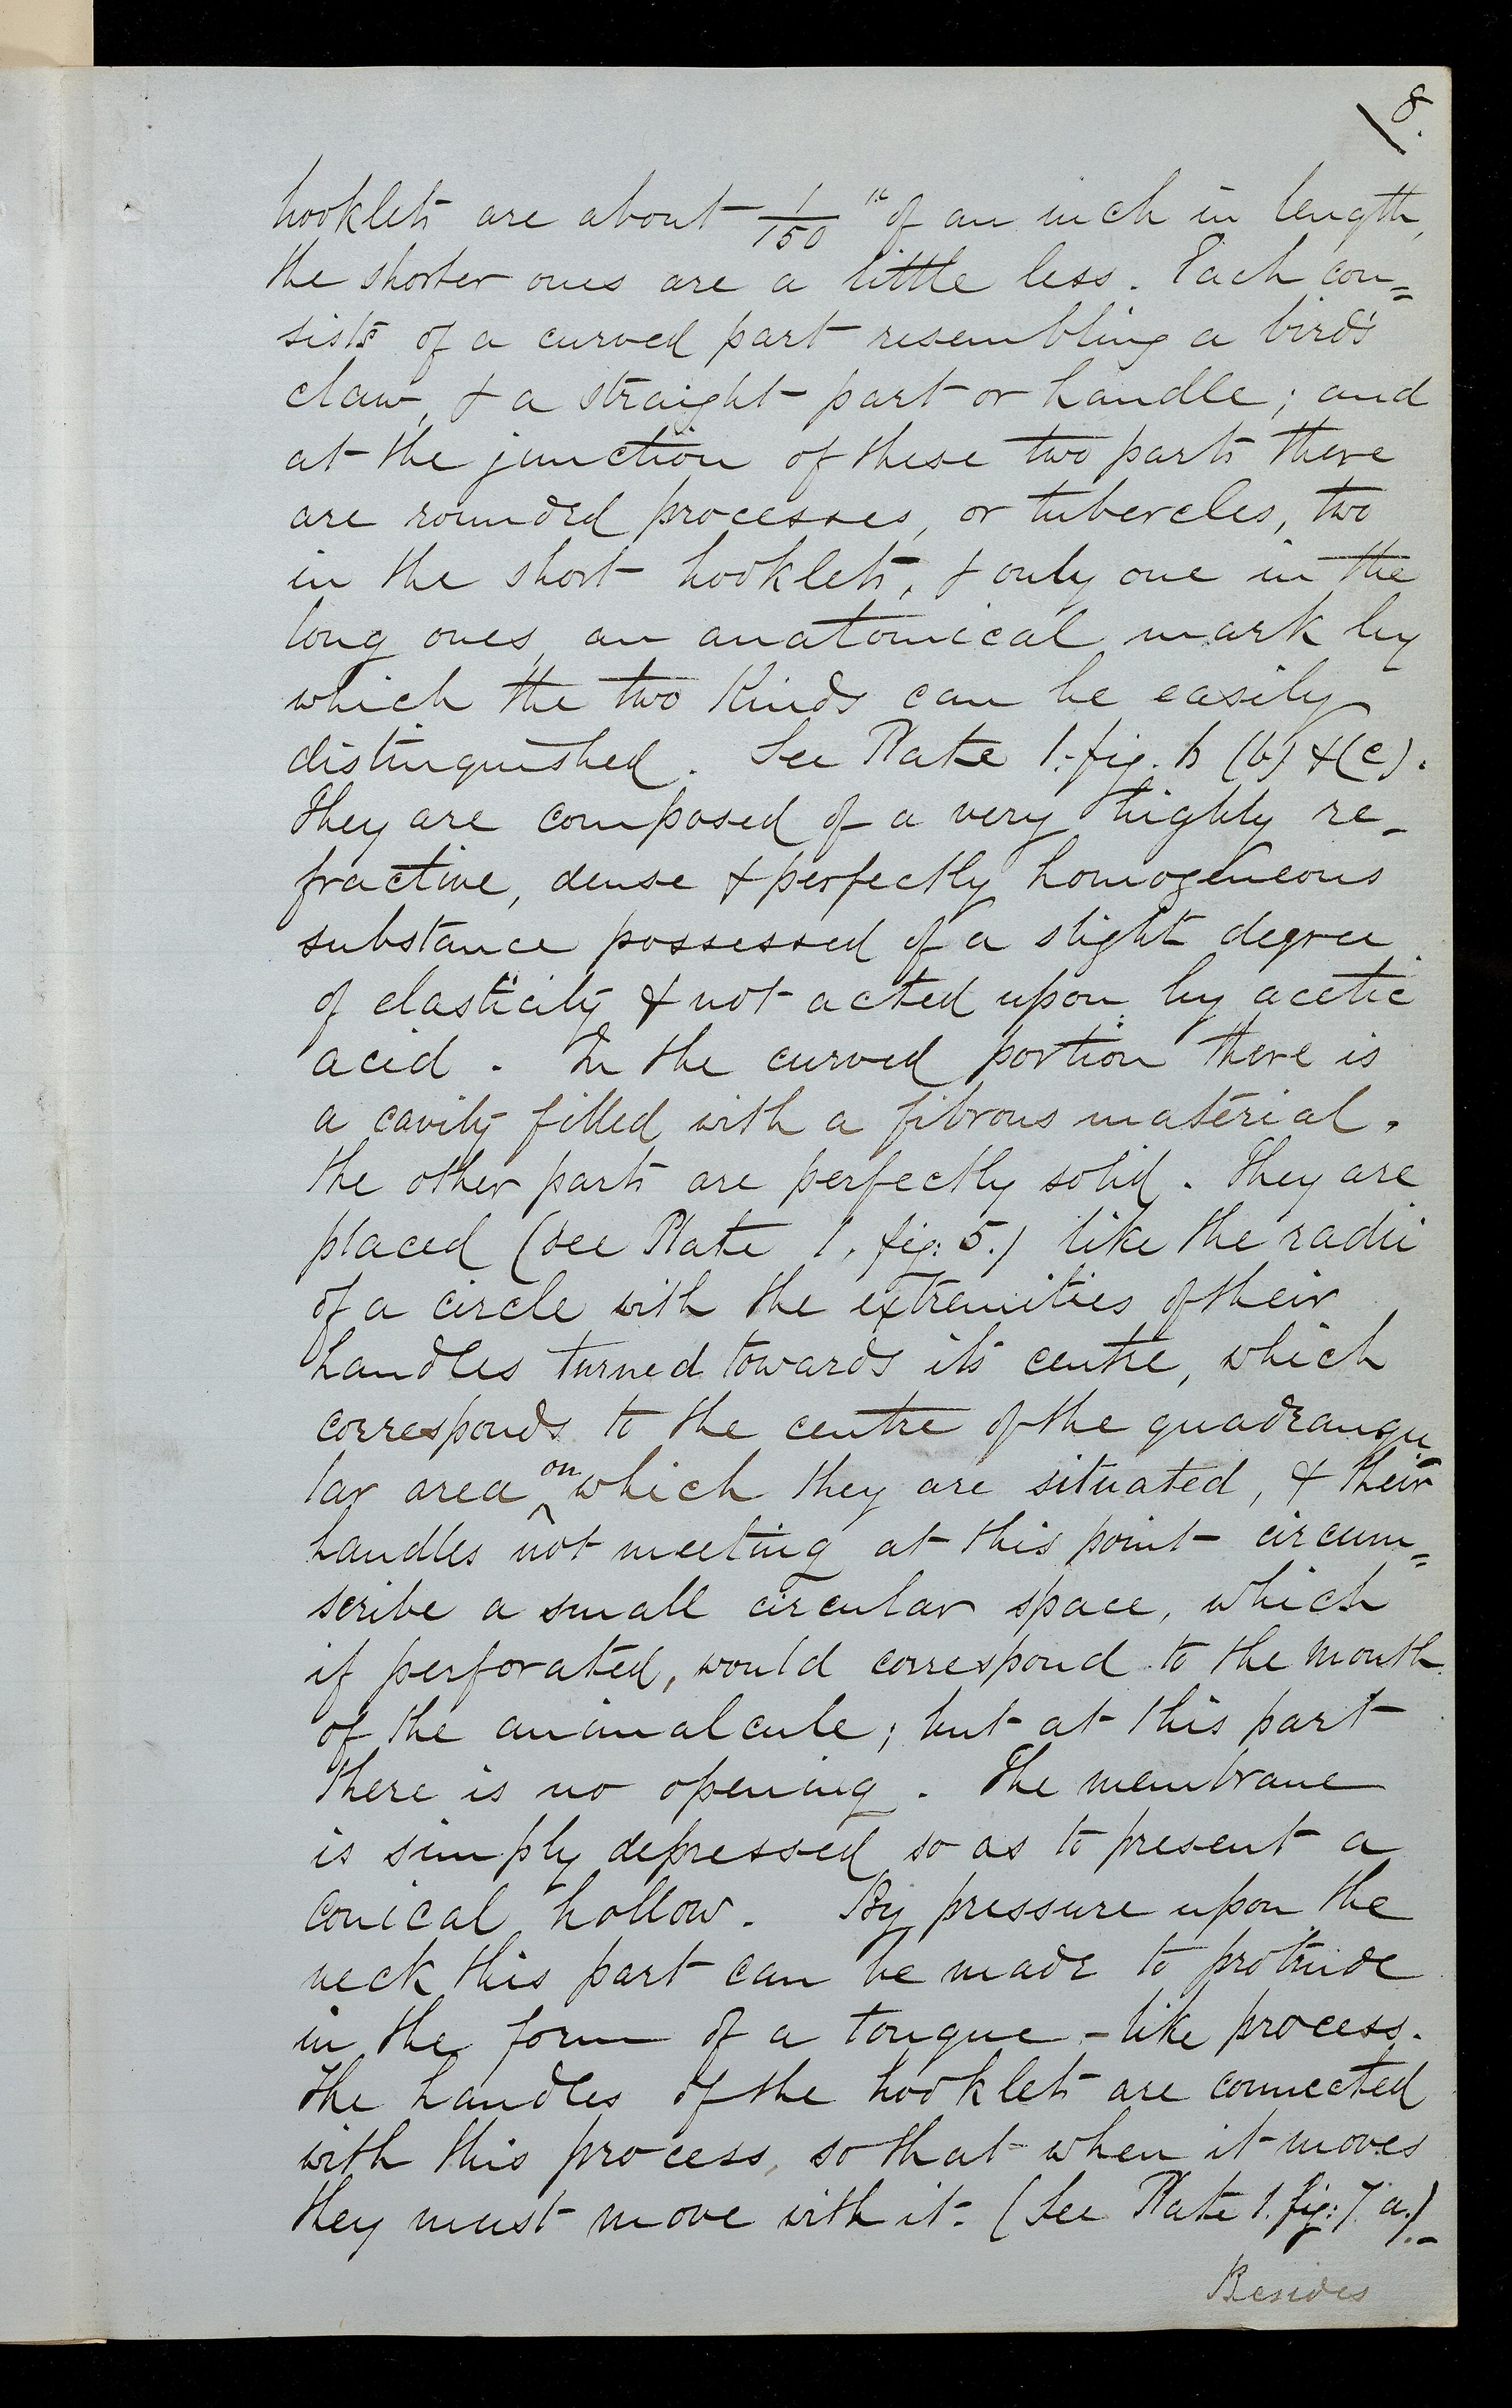 8.
hooklets are about 1/150th of an inch in length,
the shorter ones are a little less. Each con=
sists of a curved part resembling a bird's
claw, & a straight part or handle; and
at the junction of these two parts there
are rounded processes, or tubercles, two
in the short hooklets, & only one in the
long ones, an anatomical mark by
which the two kinds can be easily
distinguished. See Plate 1. fig. 6 (b) & (c).
They are composed of a very highly re-
fractive, dense & perfectly homogeneous
substance possessed of a slight degree
of elasticity & not acted upon by acetic
acid. In the curved portion there is
a cavity filled with a fibrous material.
the other parts are perfectly solid. They are
placed (see Plate 1. fig: 5.) like the radii
of a circle with the extremities of their
handles turned towards its centre, which
corresponds to the centre of the quadrangu
lar area on which they are situated, & their
handles not meeting at this point circum=
scribe a small circular space, which
if perforated, would correspond to the mouth
of the animalcule; but at this part
there is no opening. The membrane
is simply depressed so as to present a
conical hollow. By pressure upon the
neck this part can be made to protrude
in the form of a tongue-like process.
The handles of the hooklets are connected
with this process, so that when it moves
they must move with it. (See Plate 1. fig: 7. a.)-
Besides